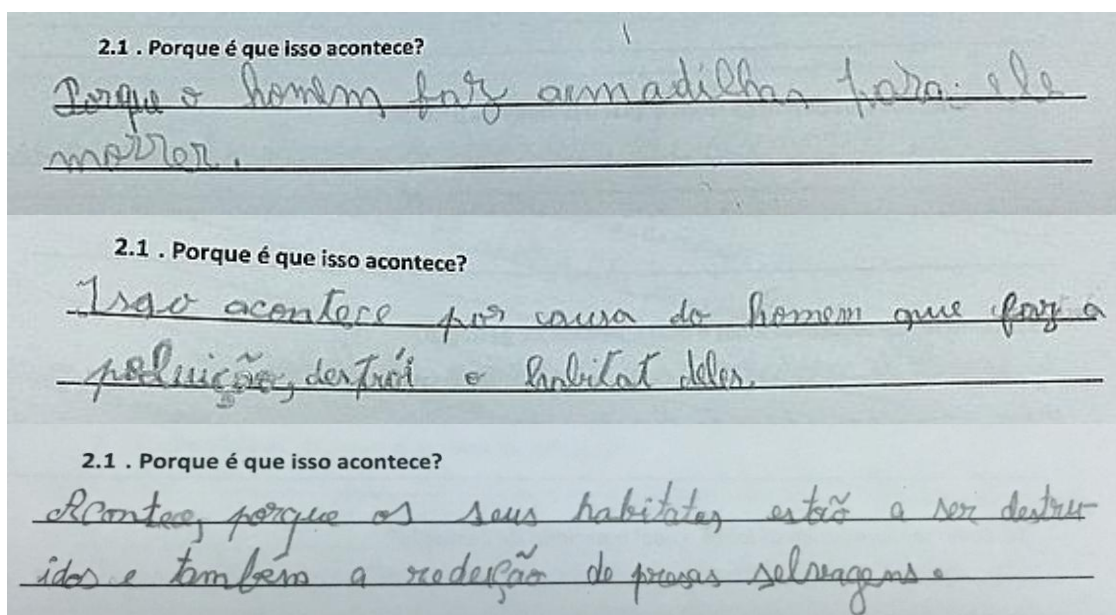 2.1 . Porque é que isso acontece?
Porque o homem faz armadilhas para ele
morrer.
2.1 . Porque é que isso acontece?
Isso acontece por causa do homem que faz a
poluição, destrói o habitat deles.
2.1 . Porque é que isso acontece?
Acontece, porque os seus habitates estão a ser destru
idos e também a redução de presas selvagens.